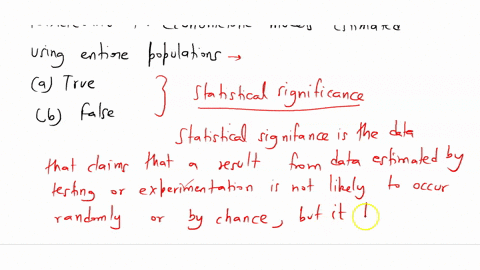 using entire populations →
(a) True
(b) False
Statistical significance
Statistical signifance is the data
that claims that a result from data estimated by
testing or experimentation is not likely to occur
randomly or by chance, but it